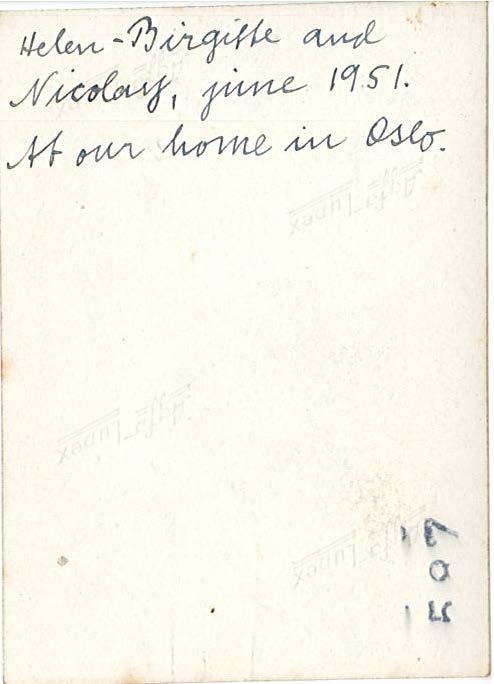 Helen-Birgitte and
Nicolay, june 1951.
At our home in Oslo.
Agfa-Lupex
Agfa-Lupex
Agfa-Lupex
507